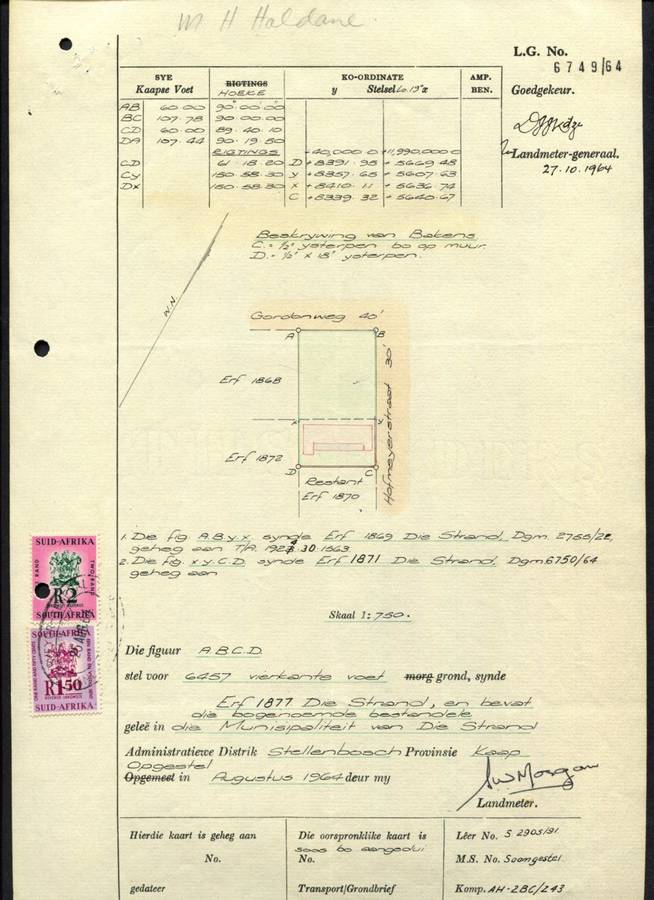 M H Haldane.
L.G. No.
6749/64
Goedgekeur.
Landmeter-generaal.
27.10.1964
SYE
Kaapse Voet
RIGTINGS
HOEKE
KO-ORDINATE
y Stelsel Lo.19° x
AMP.
BEN.
AB 60.00 90.00.00
BC 107.78 90.00.00
CD 60.00 89.40.10
DA 107.44 90.19.50
RIGTINGS +40,000.0 +11,990,000.0
CD 61.18.20 D +8391.95 +5669.48
Cy 150.58.30 y +8357.65 +5607.63
Dx 150.58.30 x +8410.11 +5636.74
C +8339.32 +5640.67
Beskrywing van Bakens
C. = ½" ysterpen bo op muur.
D. = ½" x 18" ysterpen.
W.N.
Gordonweg 40'
A B
Erf 1868
Hofmeyerstraat 30'
x y
Erf 1872
D C
Restant
Erf 1870
1. Die fig. A.B.y.x. synde Erf 1869 Die Strand, Dgm. 2755/22,
geheg aan T/A. 1924.30.1563
2. Die fig. x.y.C.D. synde Erf 1871 Die Strand Dgm 6750/64
geheg aan
SUID-AFRIKA
RAND
TWO RAND
R2
SOUTH AFRICA
SOUTH AFRICA
R1·50
SUID-AFRIKA
Skaal 1: 750.
Die figuur A.B.C.D.
stel voor 6457 vierkante voet morg grond, synde
Erf 1877 Die Strand, en bevat
die bogenoemde bestandele
geleë in die Munisipaliteit van Die Strand
Administratiewe Distrik Stellenbosch Provinsie Kaap
Opgestel
Opgemeet in Augustus 1964 deur my
Landmeter.
Hierdie kaart is geheg aan
No.
gedateer
Die oorspronklike kaart is
soos bo aangedui
No.
Transport/Grondbrief
Lêer No. S 2905/91.
M.S. No. Saamgestel
Komp. AH-2BC/243